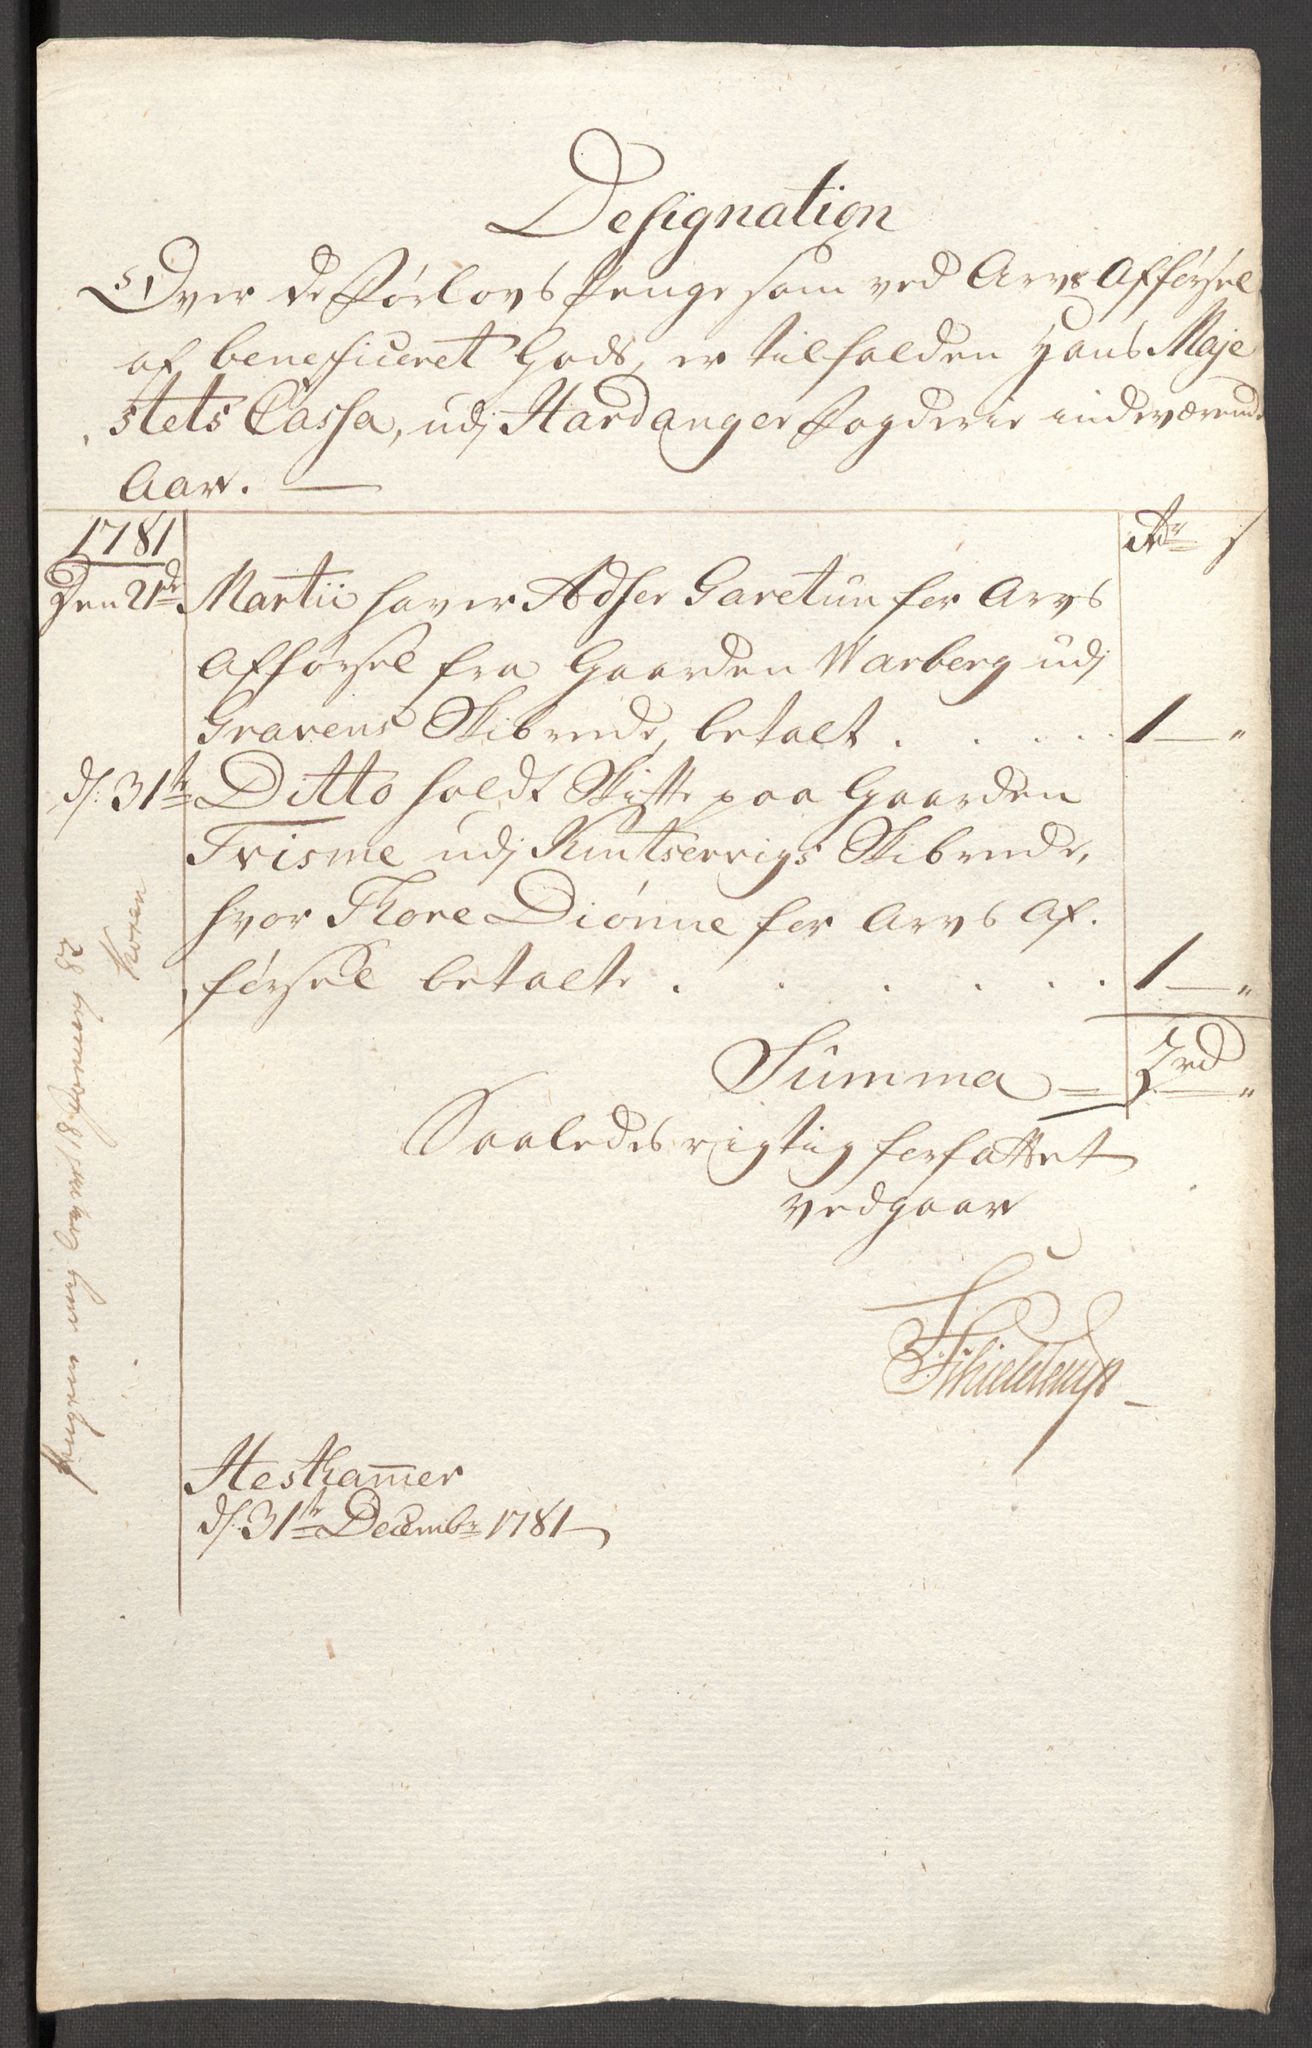 Designation
Over de Førlovs Penge som ved Arvs Afførsel
af beneficeret Gods, er tilfalden Hans Maje
stets Cassa, udj Hardanger Fogderie indeværende
Aar.
1781
Rdr s
Den 21de Martii haver Adser Garetun for Arvs
Afførsel fra Gaarden Warberg udj
Gravens Skibrede, betalt . . . . . 1 — "
d: 31te Ditto holdt Skifte paa Gaarden
Trisme udj Kintservigs Skibrede,
hvor Thore Diönne for Arvs Af.
førsel betalte . . . . . . 1 — "
Summa = 2rd "
Saaledes rigtig forfattet
vedgaar
Schieldrup
Hestham̄er
d: 31te Decembr 1781